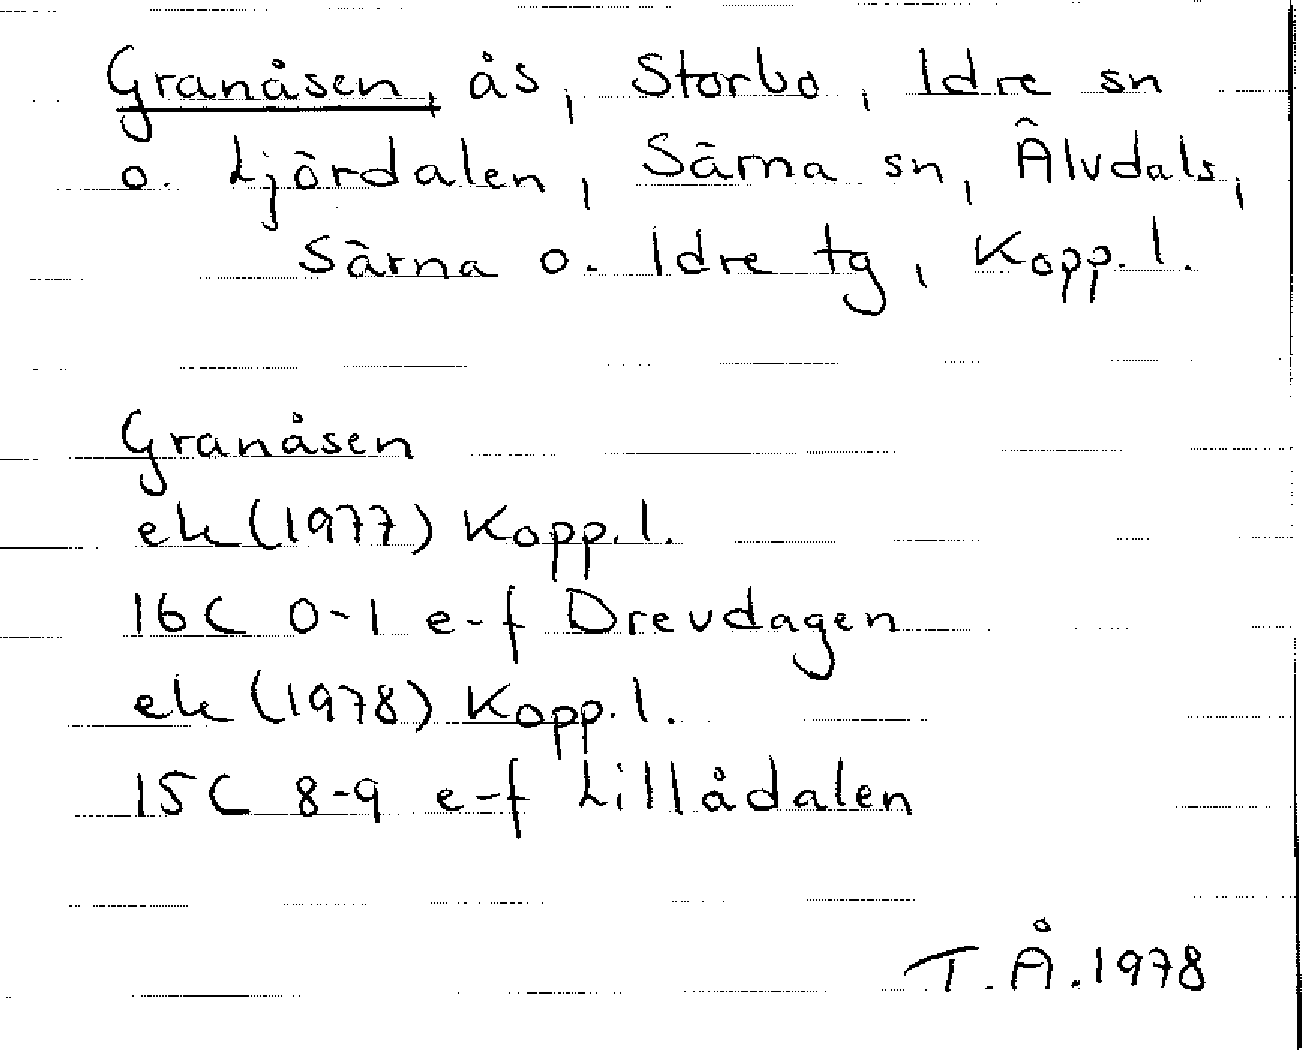 Granåsen, ås, Storbo, Idre sn
o. Ljördalen, Särna sn, Älvdals,
Särna o. Idre tg, Kopp. l.
Granåsen
ek (1977) Kopp. l.
16C 0-1 e-f Drevdagen
ek (1978) Kopp. l.
15C 8-9 e-f Lillådalen
T. Å. 1978